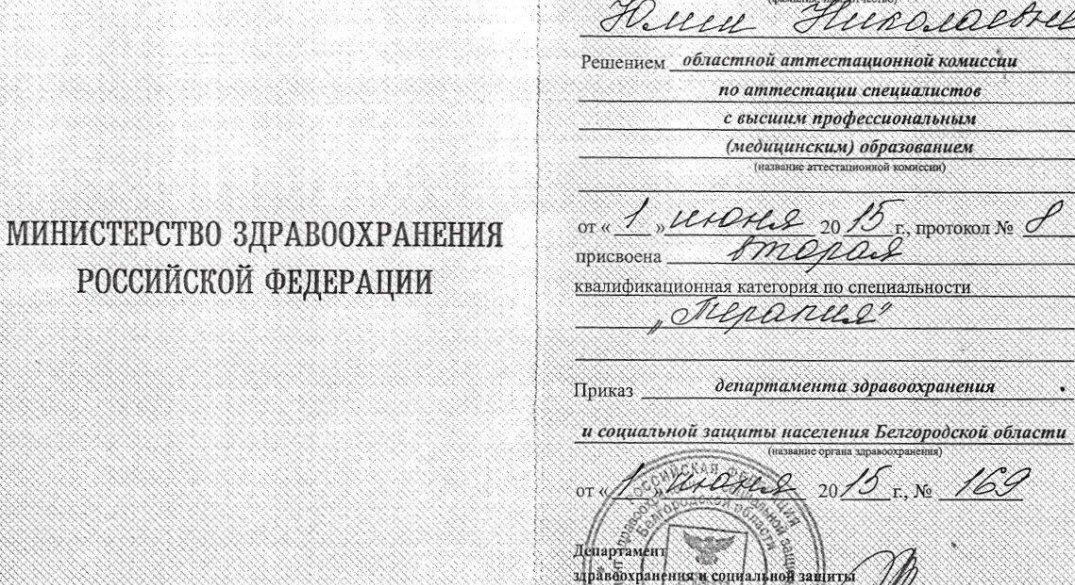 МИНИСТЕРСТВО ЗДРАВООХРАНЕНИЯ
РОССИЙСКОЙ ФЕДЕРАЦИИ
Юлии Николаевне
Решением областной аттестационной комиссии
по аттестации специалистов
с высшим профессиональным
(медицинским) образованием
(название аттестационной комиссии)
от « 1 » июня 20 15 г., протокол № 8
присвоена вторая
квалификационная категория по специальности
„Терапия"
Приказ департамента здравоохранения
и социальной защиты населения Белгородской области
(название органа здравоохранения)
от « 1 » июня 20 15 г., № 169
РОССИЙСКАЯ ФЕДЕРАЦИЯ
Белгородской области
Департамент
здравоохранения и социальной защиты